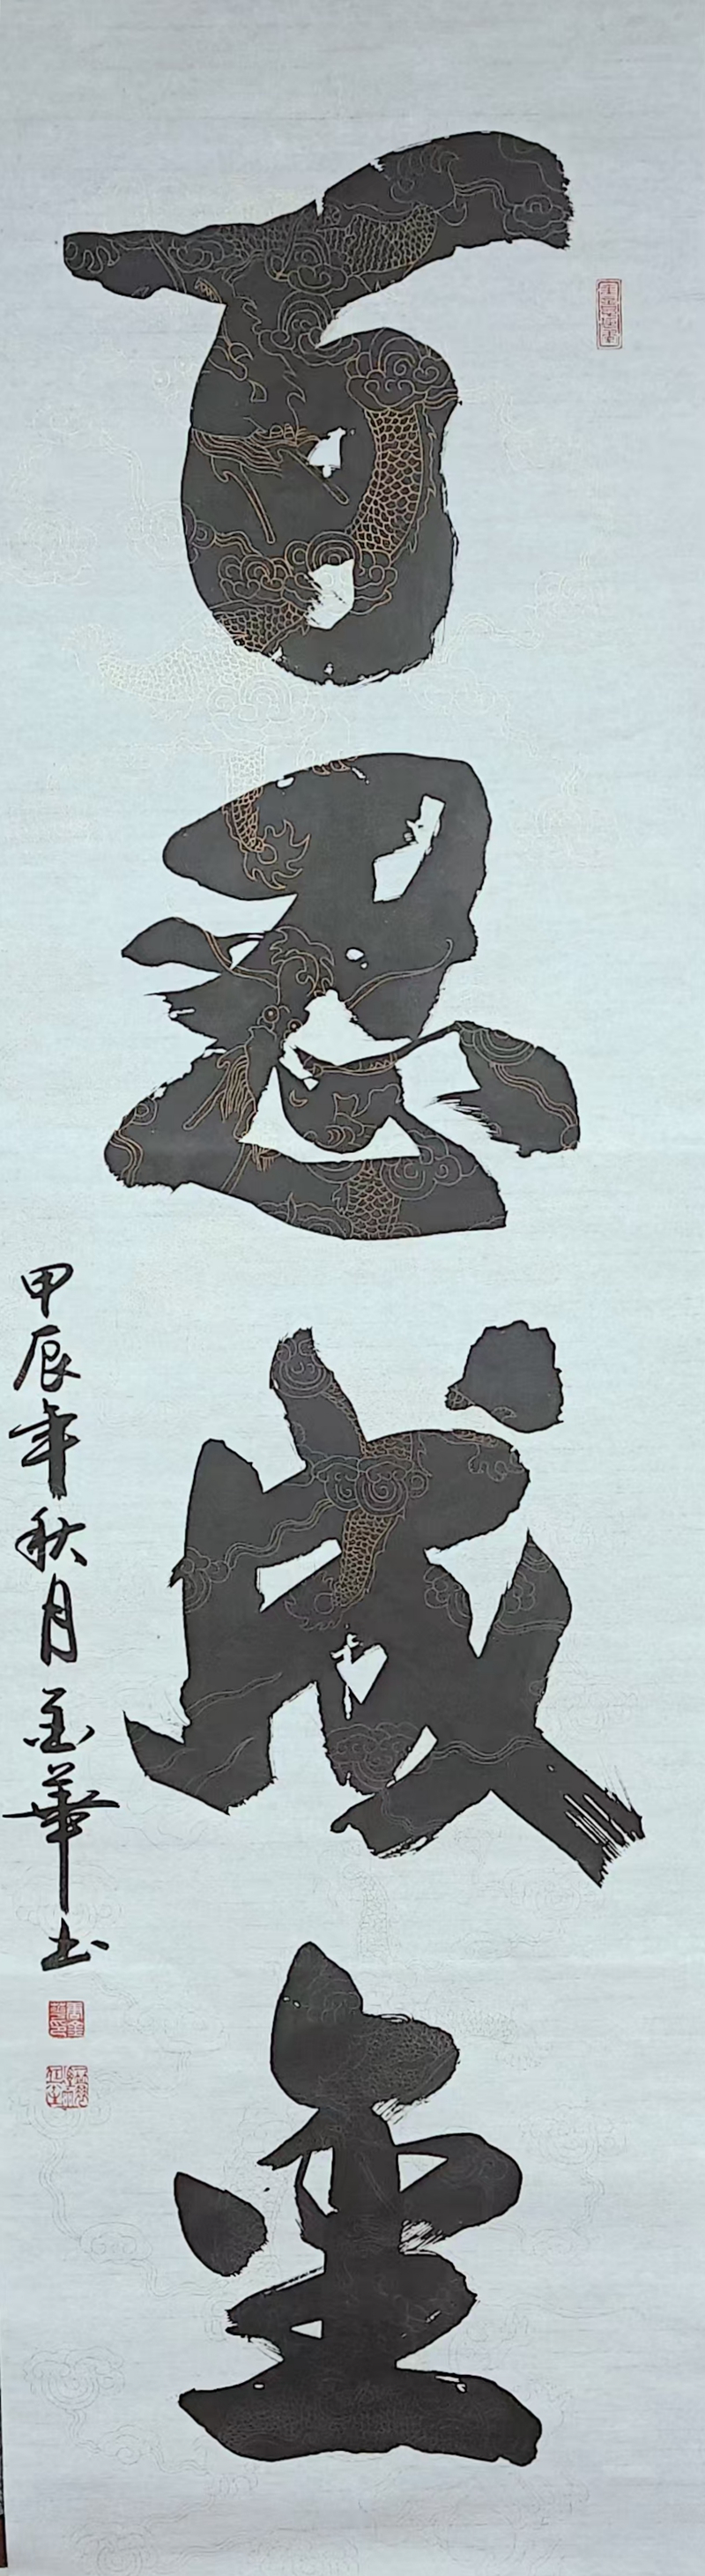 百忍成金
甲辰年秋月金華书